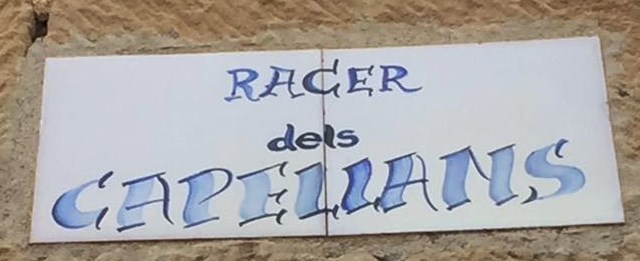 RACER
dels
CAPELLANS